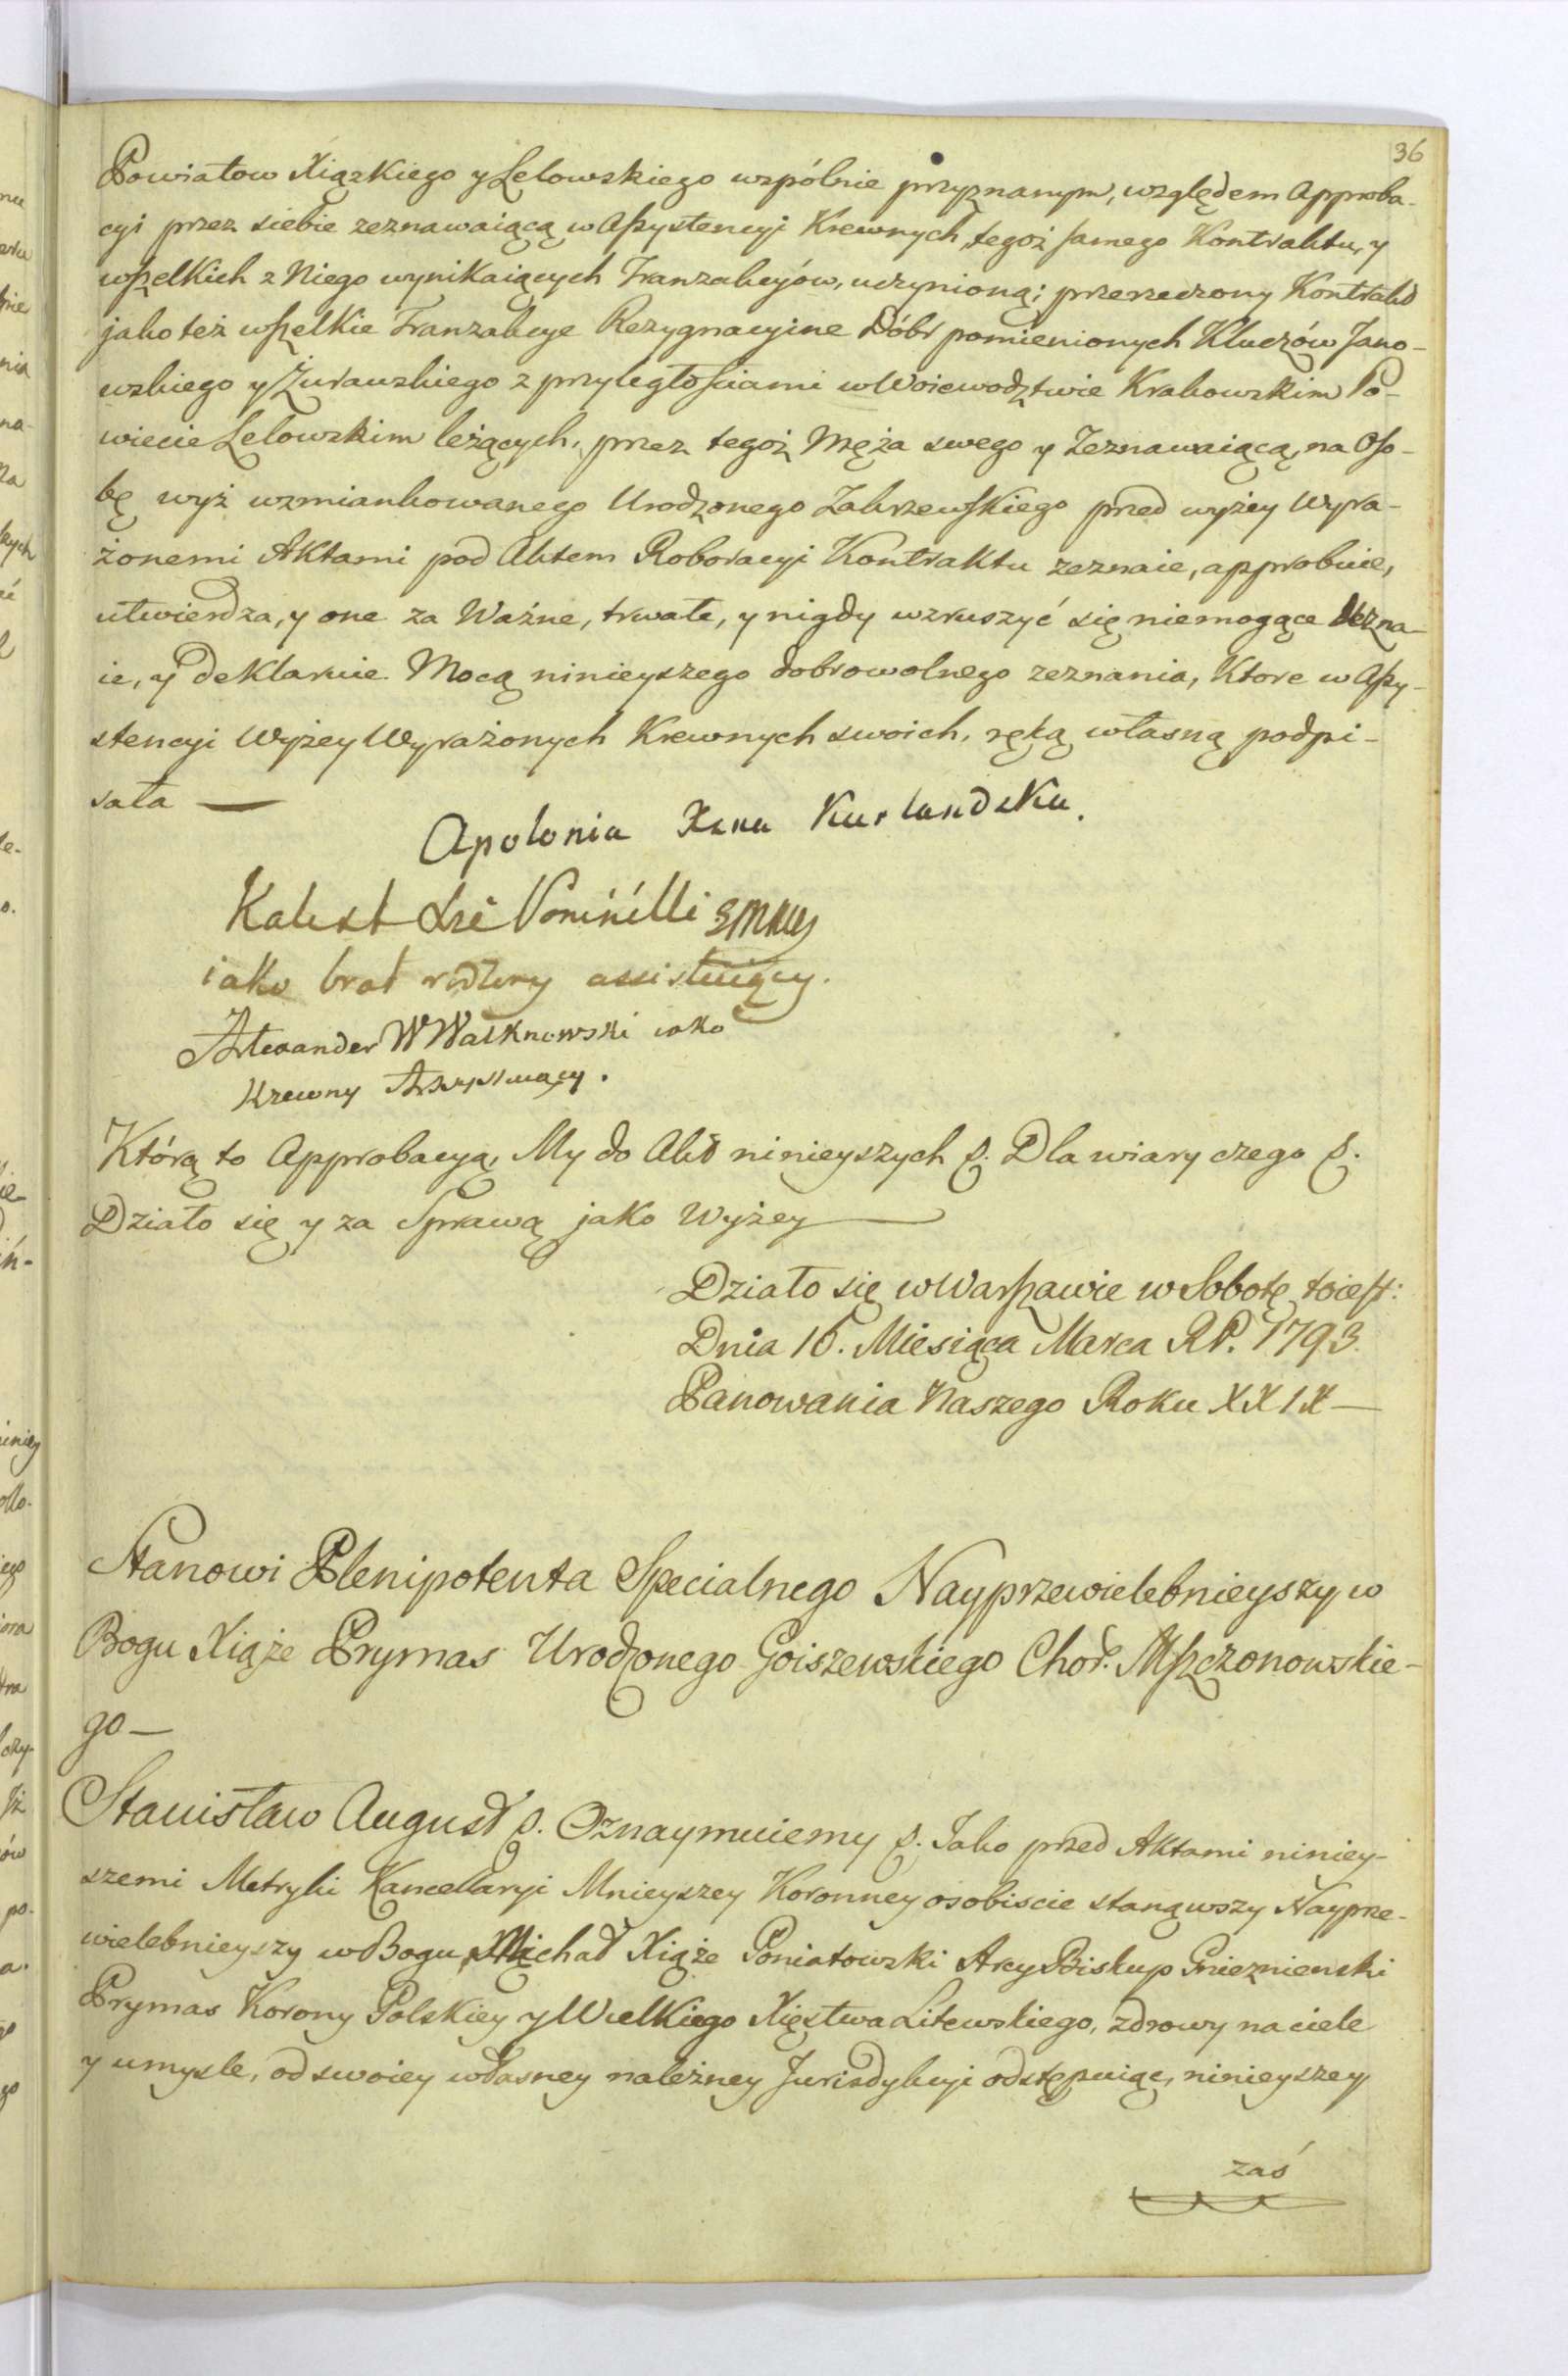 36
Powiatow Xiązkiego y Lelowskiego wspólnie przyznanym, względem Approba-
cyi przez siebie zeznawaiącą w Assystencyi Krewnych, tegoż samego Kontraktu, y
wszelkich z Niego wynikaiących Tranzakcyów, uczynioną; przerzeczony Kontrakt
jako też wszelkie Tranzakcye Rezygnacyine Dóbr pomienionych Kluczów Jano-
wskiego y Żurawskiego z przyległościami w Woiewodztwie Krakowskim Po-
wiecie Lelowskim leżących, przez tegoż Męża swego y Zeznawaiącą, na Oso-
bę wyż wzmiankowanego Urodzonego Zakrzewskiego przed wyżey wyra-
żonemi Aktami pod Aktem Roboracyi Kontraktu zeznaie, approbuie,
utwierdza, y one za Ważne, trwałe, y nigdy wzruszyć się niemogące uzna-
ie, y deklaruie. Mocą ninieyszego dobrowolnego zeznania, Ktore w Assy-
stencyi Wyżey Wyrażonych Krewnych swoich, ręką własną podpi-
sała —
Apolonia Xzna Kurlandzka.
Kalixt Xże Poniński
iako brat rodzony assistuiący.
Alexander Walknowski iako
Krewny Assystuiący.
Którą to Approbacyą, My do Akt ninieyszych &. Dla wiary czego &.
Działo się y za Sprawą jako Wyżey —
Działo się w Warszawie w Sobotę toiest:
Dnia 16. Miesiąca Marca RP. 1793.
Panowania Naszego Roku XXIX —
Stanowi Plenipotenta Specialnego Nayprzewielebnieyszy w
Bogu Xiąże Prymas Urodzonego Goiszewskiego Chor. Mszczonowskie-
go —
Stanisław August &. Oznaymuiemy &. Jako przed Aktami niniey-
szemi Metryki Kancellaryi Mnieyszey Koronney osobiscie stanąwszy Nayprze-
wielebnieyszy w Bogu Michał Xiąże Poniatowski Arcy Biskup Gnieznienski
Prymas Korony Polskiey y Wielkiego Xięstwa Litewskiego, zdrowy na ciele
y umysle, od swoiey własney należney Jurisdykcyi odstępuiąc, ninieyszey
zaś